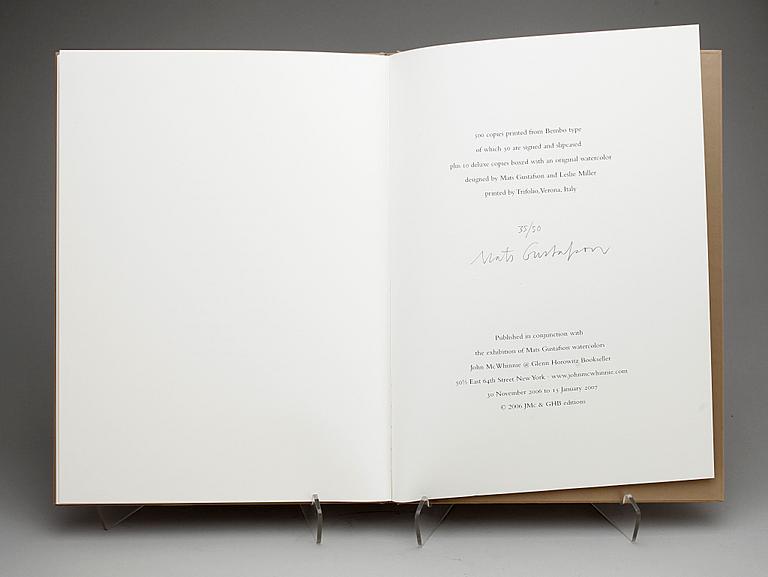 500 copies printed from Bembo type
of which 50 are signed and slipcased
plus 10 deluxe copies boxed with an original watercolor
designed by Mats Gustafson and Leslie Miller
printed by Trifolio, Verona, Italy
35/50
Mats Gustafson
Published in conjunction with
the exhibition of Mats Gustafson watercolors
John McWhinnie @ Glenn Horowitz Bookseller
50½ East 64th Street New York · www.johnmcwhinnie.com
30 November 2006 to 15 January 2007
© 2006 JMc & GHB editions